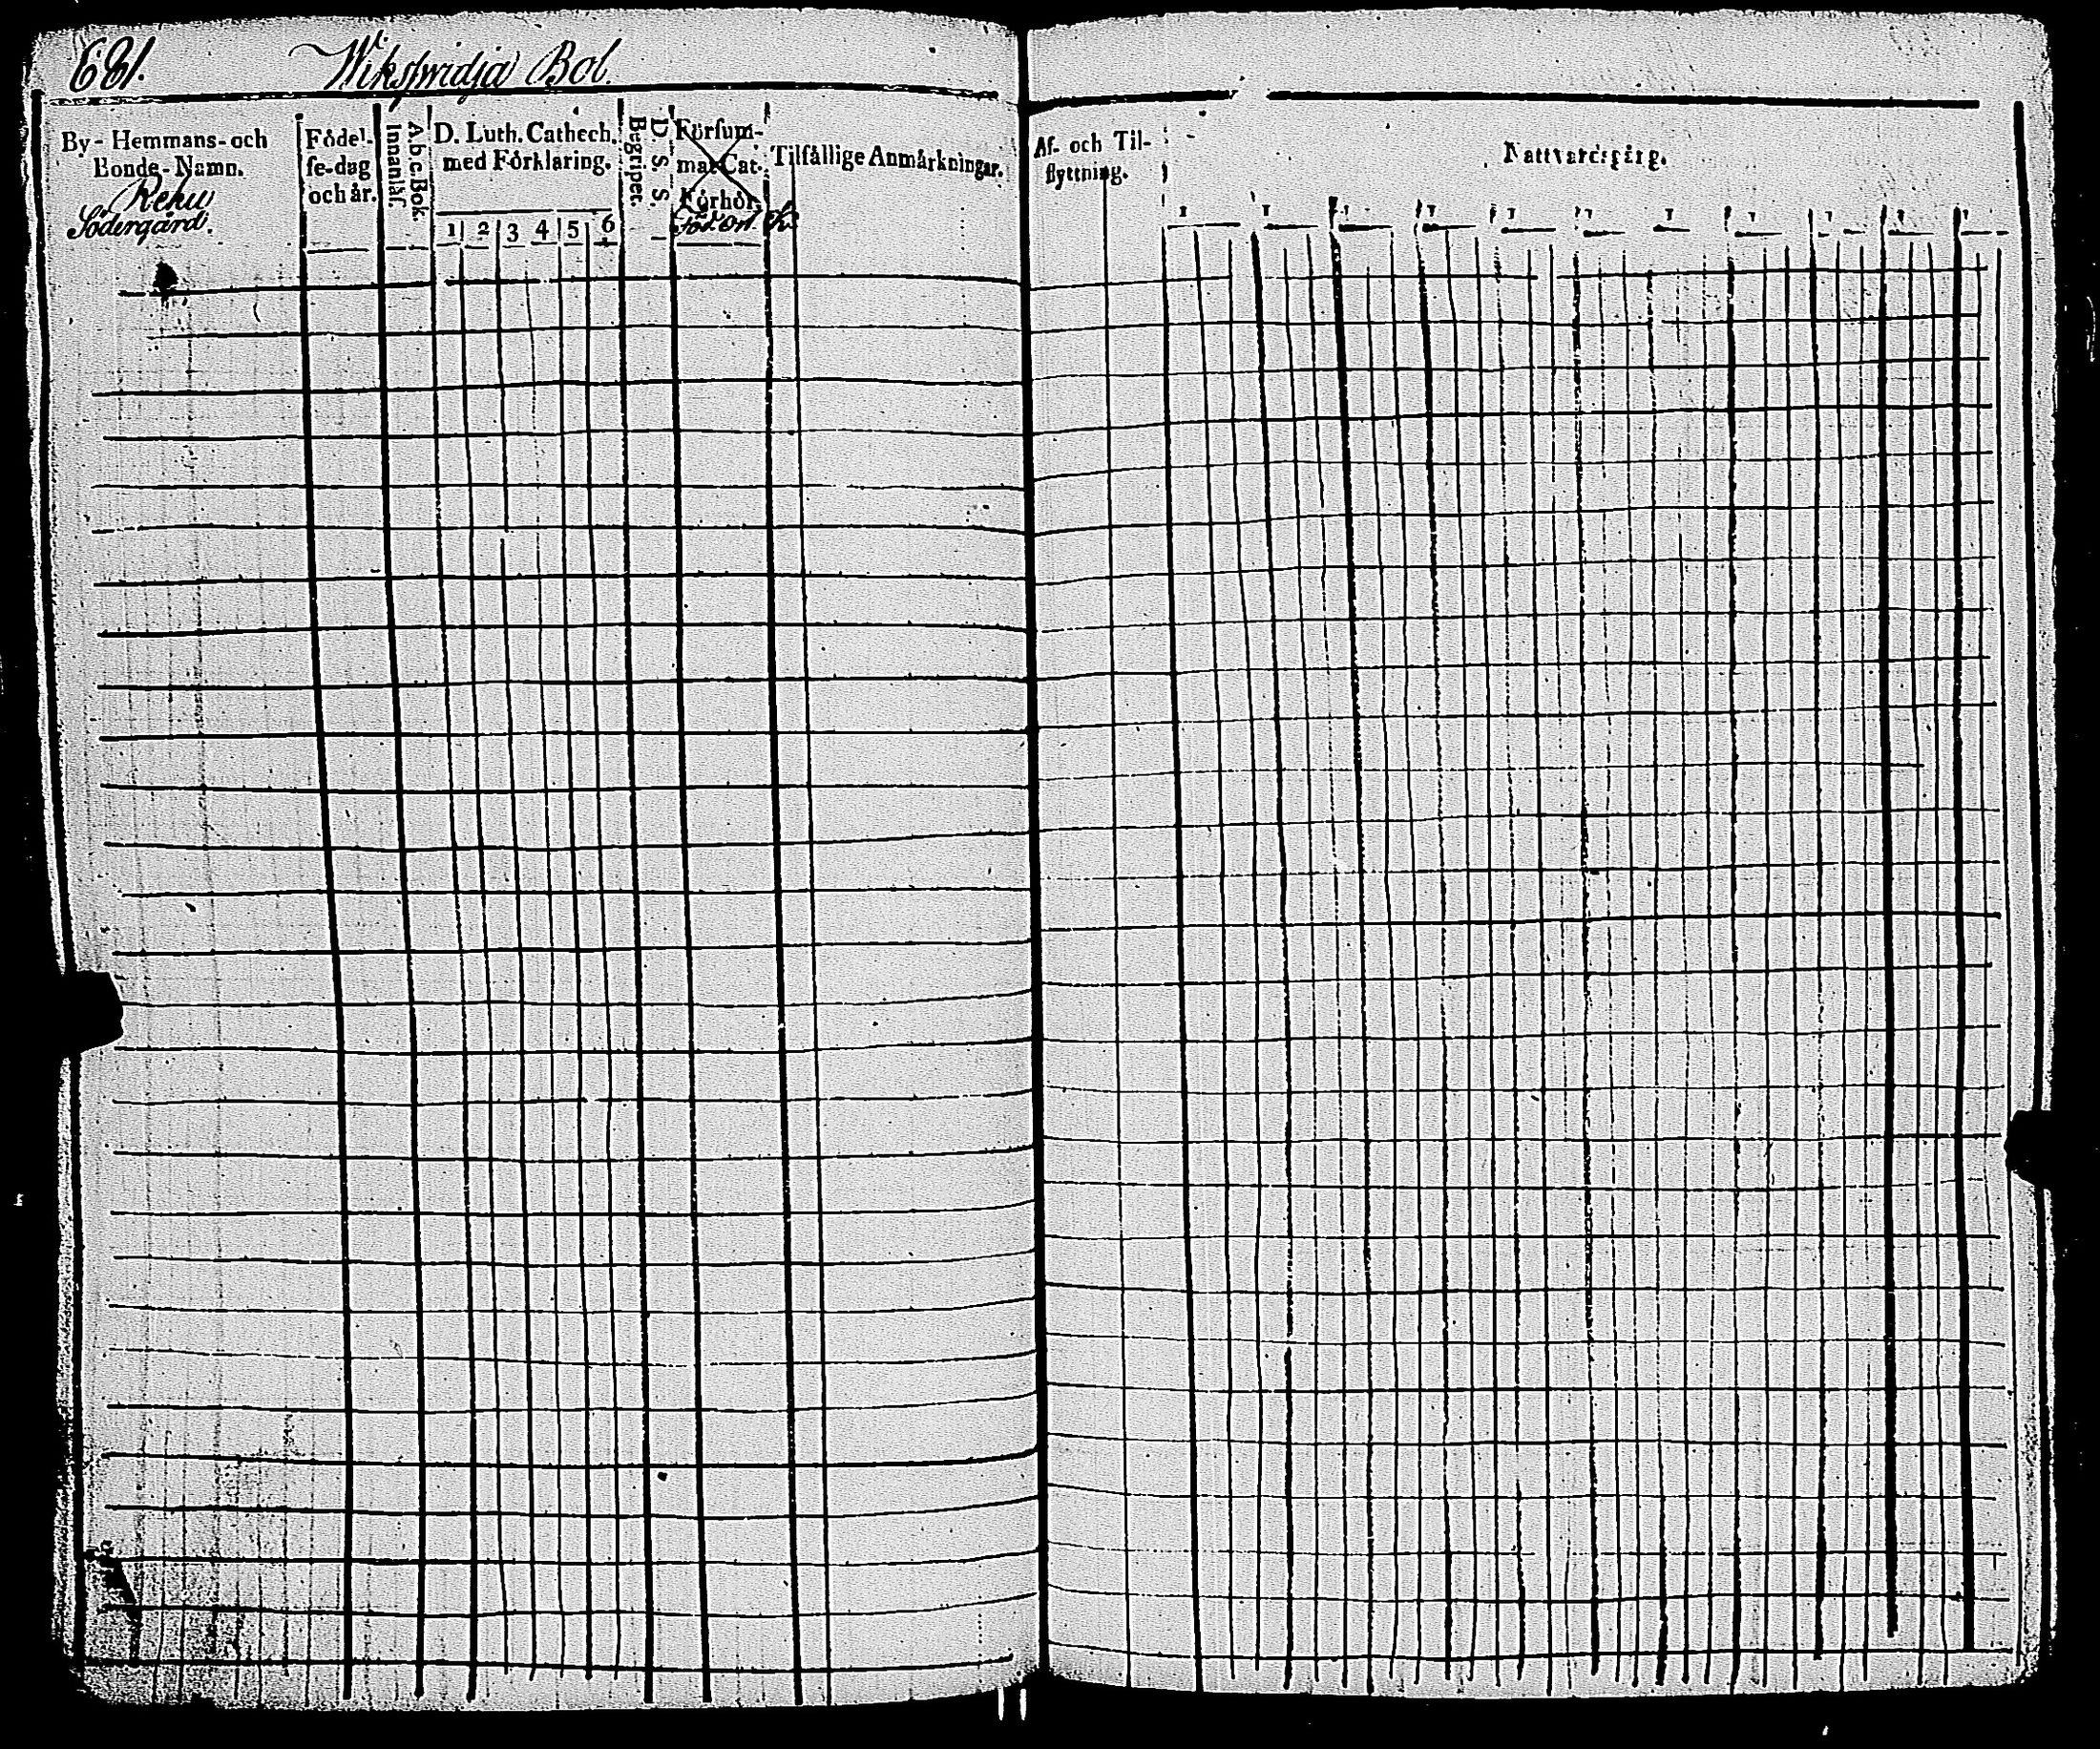 681. Wikspridja Bol.
By- Hemmans- och
Bonde- Namn.
Rehu
Södergård.
Födel-
se-dag
och år.
A b c Bok
Innanläs.
D. Luth. Cathech.
med Förklaring.
1 2 3 4 5 6
D. S. S.
Begriper.
Försum-
mat Cat.
Förhör.
Föd. ort
Tilfällige Anmärkningar.
Af- och Til-
flyttning.
Nattvardsgång.